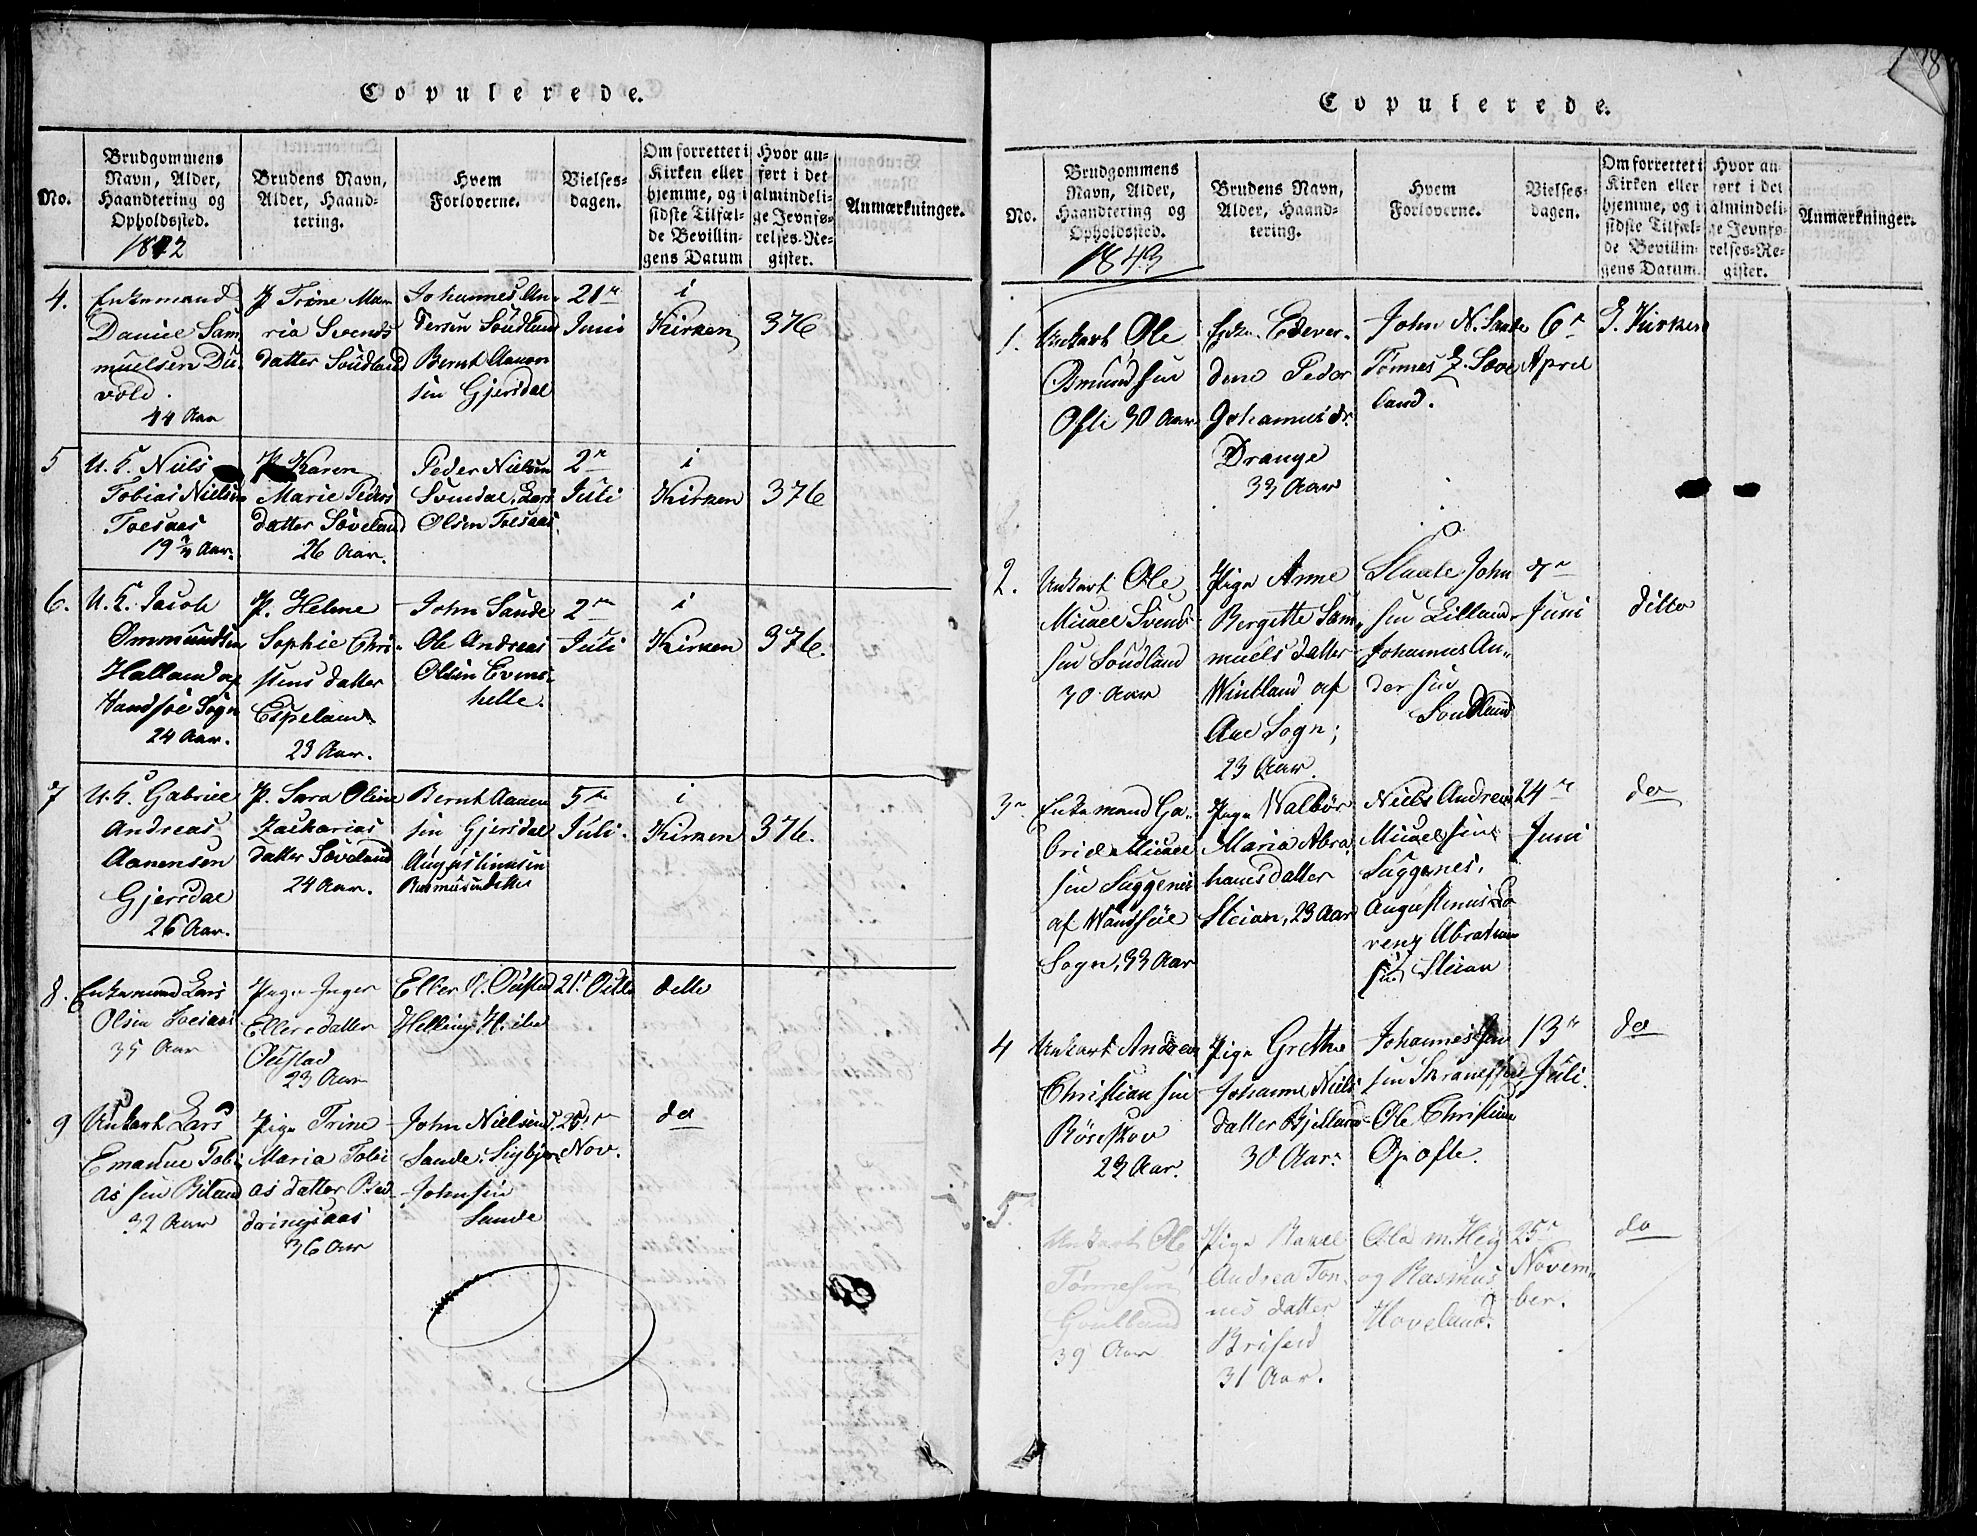 Copulerede.
No.
Brudgommens
Navn, Alder,
Haandtering og
Opholdssted.
1842
Brudens Navn,
Alder, Haand-
tering.
Hvem
Forloverne.
Vielses-
dagen.
Om forrettet i
Kirken eller
hjemme, og i
sidste Tilfæl-
de Bevillin-
gens Datum
Hvor an-
ført i det
almindeli-
ge Jevnfø-
relses-Re-
gister.
Anmærkninger.
4.
Enkemand
Daniel Sam
muelsen Du
vold.
44 Aar
P Trine Mar
ria Svends
datter Soudland
Johannes An-
dersen Soudland
Bernt Aanon
sen Gjersdal
21de
Juni
i
Kirken
376
5
U. K. Niels
Tobias Nielsen
Toesaas
19 Aar.
P Karen
Marie Peders
datter Søveland
26 Aar.
Peder Nielsen
Svendal. Lars
Olsen Toesaas.
2n
Juli
i
Kirken
376
6.
U. K. Jacob
Ommundsen
Halland af
Vandsøe Sogn
24 Aar.
P. Helene
Sophie Chri-
stens datter
Espeland
23 Aar.
John Sande
Ole Andreas
Olsen Evens-
helle.
2n
Juli
i
Kirken
376.
7
U. K. Gabriel
Andreas
Aanensen
Gjersdal
26 Aar.
P. Sara Oline
Zacharias
datter Søveland
24 Aar.
Bernt Aanen
sen Gjersdal
Augustinusen
5te
Juli.
i
Kirken
376.
8.
Enkemand Lars
Olsen Toesaas
35 Aar
Pige Inger
Ellers datter
Oustad
23 Aar
Eller O. Oustad
21.
ditto
9
Unkarl Lars
Emanuel Tobi
as sen Biland
32 Aar
Pige Trine
Maria Tobi
as datter
36 Aar
John Nielsen
Sande. Sigbjørn
Johnsen
Sande
25.
Nov.
do
Copulerede.
18
No.
Brudgommens
Navn, Alder,
Haandtering og
Opholdssted.
1843
Brudens Navn,
Alder, Haand-
tering.
Hvem
Forloverne.
Vielses-
dagen.
Om forrettet i
Kirken eller
hjemme, og i
sidste Tilfæl-
de Bevillin-
gens Datum.
Hvor an-
ført i det
almindeli-
ge Jevnfø-
relses-Re-
gister.
Anmærkninger.
1.
Unkarl Ole
Osmundsen
Ofte 30 Aar
Edever-
dene Peder
Johannesdr.
Drange
33 Aar
John N. Sande
Tønnes Z. Søve
land.
6te
April
I. Kirken
2.
Unkarl Ole
Micael Svend
sen Soudland
30 Aar
Pige Anne
Bergette Sam
muels datter
Wintland af
Aae Sogn;
23 Aar
Staale John
sen Lilland
Johannes An-
dersen
Soudland
7n
Juni
ditto
3n
Enkemand Ga-
briel Micael
sen Suggenes
af Wandsøe
Sogn, 33 Aar
Pige Walbør
Maria Abra
hamsdatter
Steian, 23 Aar
Niels Andreas
Micaelsen
Suggenes.
Augustinus Lo
renz Abraham
sen Steian
24de
Juni
do
4
Unkarl Andreas
Christiansen
Røseskov
23 Aar.
Pige Grethe
Johanne Niels
datter Bjelland
30 Aar.
Ole Christian
Opofte.
13de
Juli.
do
5.
Unkarl Ole
Tønnesen
39 Aar
Pige Rakel
Andrea Tøn
nes datter
Briseid
31 Aar.
Ola M. Heg
og Rasmus
Hoveland.
25n
Novem-
ber.
do